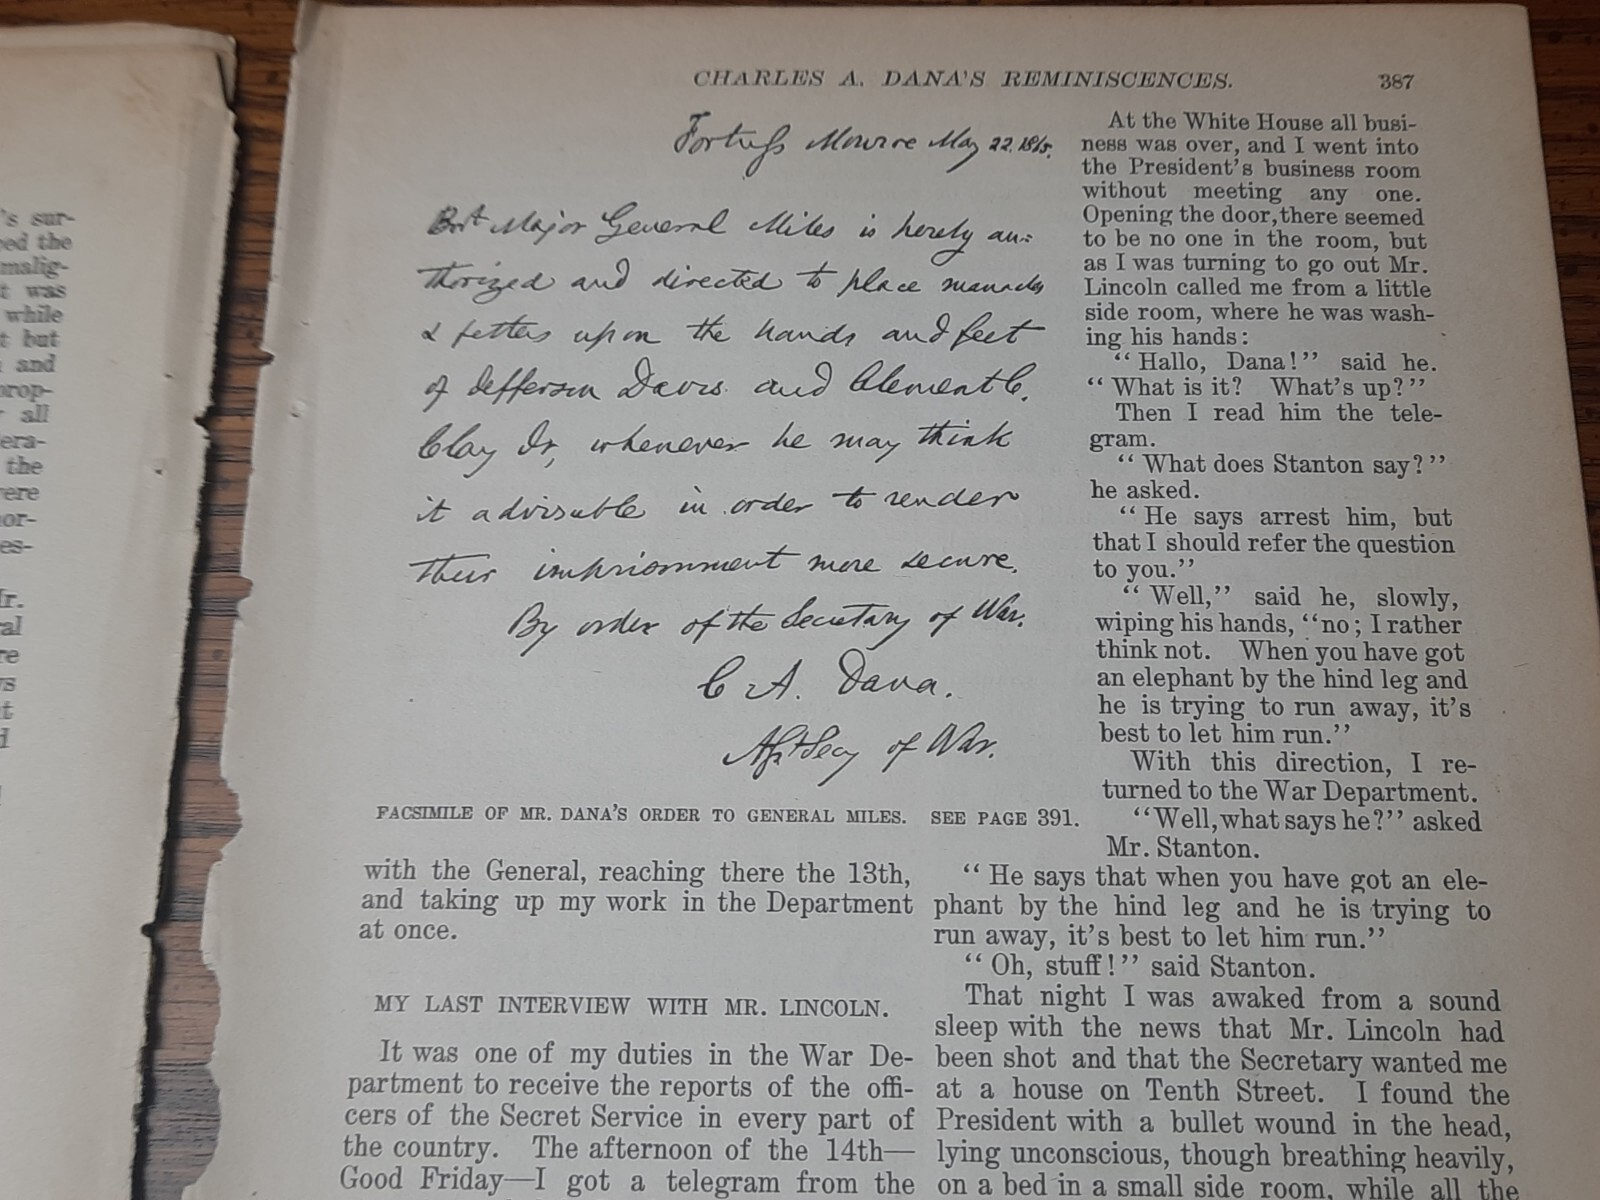 's sur-
malig-
t was
while
t but
and
prop-
all
era-
the
ere
or-
es-
CHARLES A. DANA'S REMINISCENCES. 387
Fortress Monroe May 22. 1865.
Bvt Major General Miles is hereby au-
thorized and directed to place manacles
& fetters upon the hands and feet
of Jefferson Davis and Clement C.
Clay Jr, whenever he may think
it advisable in order to render
their imprisonment more secure.
By order of the Secretary of War.
C A. Dana.
Asst Secy of War.
FACSIMILE OF MR. DANA'S ORDER TO GENERAL MILES. SEE PAGE 391.
with the General, reaching there the 13th,
and taking up my work in the Department
at once.
MY LAST INTERVIEW WITH MR. LINCOLN.
It was one of my duties in the War De-
partment to receive the reports of the offi-
cers of the Secret Service in every part of
the country. The afternoon of the 14th—
Good Friday—I got a telegram from the
At the White House all busi-
ness was over, and I went into
the President's business room
without meeting any one.
Opening the door, there seemed
to be no one in the room, but
as I was turning to go out Mr.
Lincoln called me from a little
side room, where he was wash-
ing his hands:
"Hallo, Dana!" said he.
"What is it? What's up?"
Then I read him the tele-
gram.
"What does Stanton say?"
he asked.
"He says arrest him, but
that I should refer the question
to you."
"Well," said he, slowly,
wiping his hands, "no; I rather
think not. When you have got
an elephant by the hind leg and
he is trying to run away, it's
best to let him run."
With this direction, I re-
turned to the War Department.
"Well, what says he?" asked
Mr. Stanton.
"He says that when you have got an ele-
phant by the hind leg and he is trying to
run away, it's best to let him run."
"Oh, stuff!" said Stanton.
That night I was awaked from a sound
sleep with the news that Mr. Lincoln had
been shot and that the Secretary wanted me
at a house on Tenth Street. I found the
President with a bullet wound in the head,
lying unconscious, though breathing heavily,
on a bed in a small side room, while all the